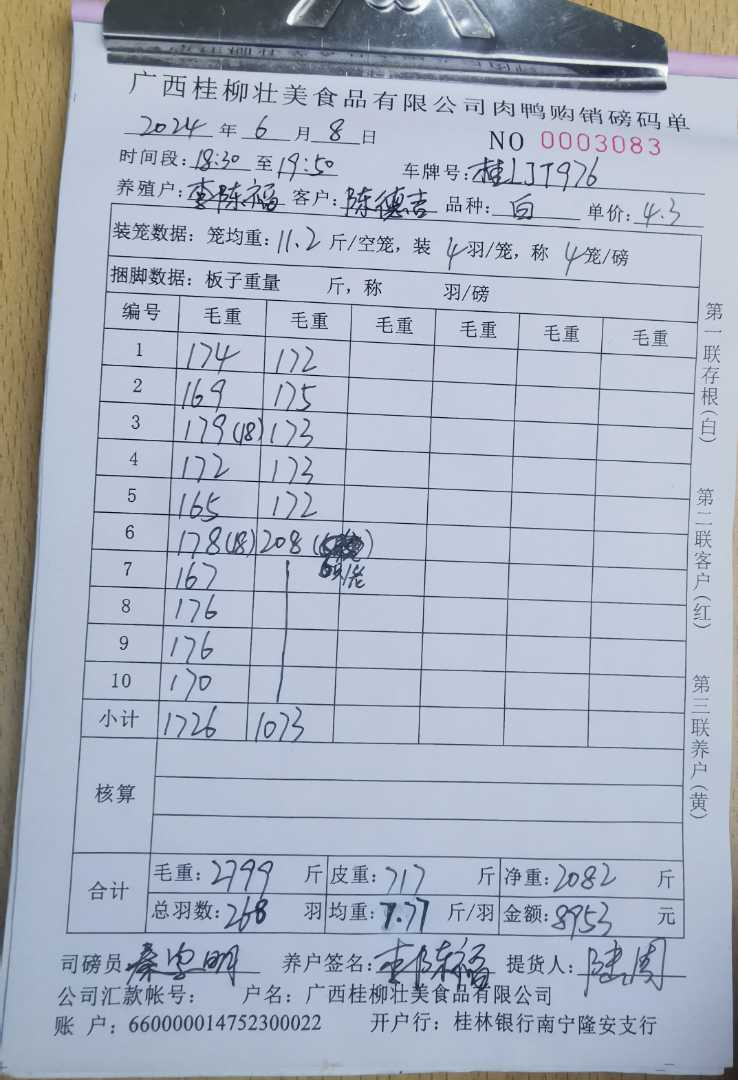 广西桂柳壮美食品有限公司肉鸭购销磅码单
2024 年 6 月 8 日 NO 0003083
时间段: 18:30 至 19:50 车牌号: 桂LJT976
养殖户: 李陈福 客户: 陈德吉 品种: 白 单价: 4.3
装笼数据: 笼均重: 11.2 斤/空笼, 装 4 羽/笼, 称 4 笼/磅
捆脚数据: 板子重量 斤, 称 羽/磅
编号 毛重 毛重 毛重 毛重 毛重 毛重
1 174 172
2 169 175
3 179(18) 173
4 172 173
5 165 172
6 178(18) 208
7 167
8 176
9 176
10 170
小计 1726 1073
核算
合计 毛重: 2799 斤 皮重: 717 斤 净重: 2082 斤
总羽数: 268 羽 均重: 7.77 斤/羽 金额: 8953 元
司磅员: 养户签名: 李陈福 提货人:
公司汇款帐号: 户名: 广西桂柳壮美食品有限公司
账 户: 660000014752300022 开户行: 桂林银行南宁隆安支行
第一联存根(白)
第二联客户(红)
第三联养户(黄)